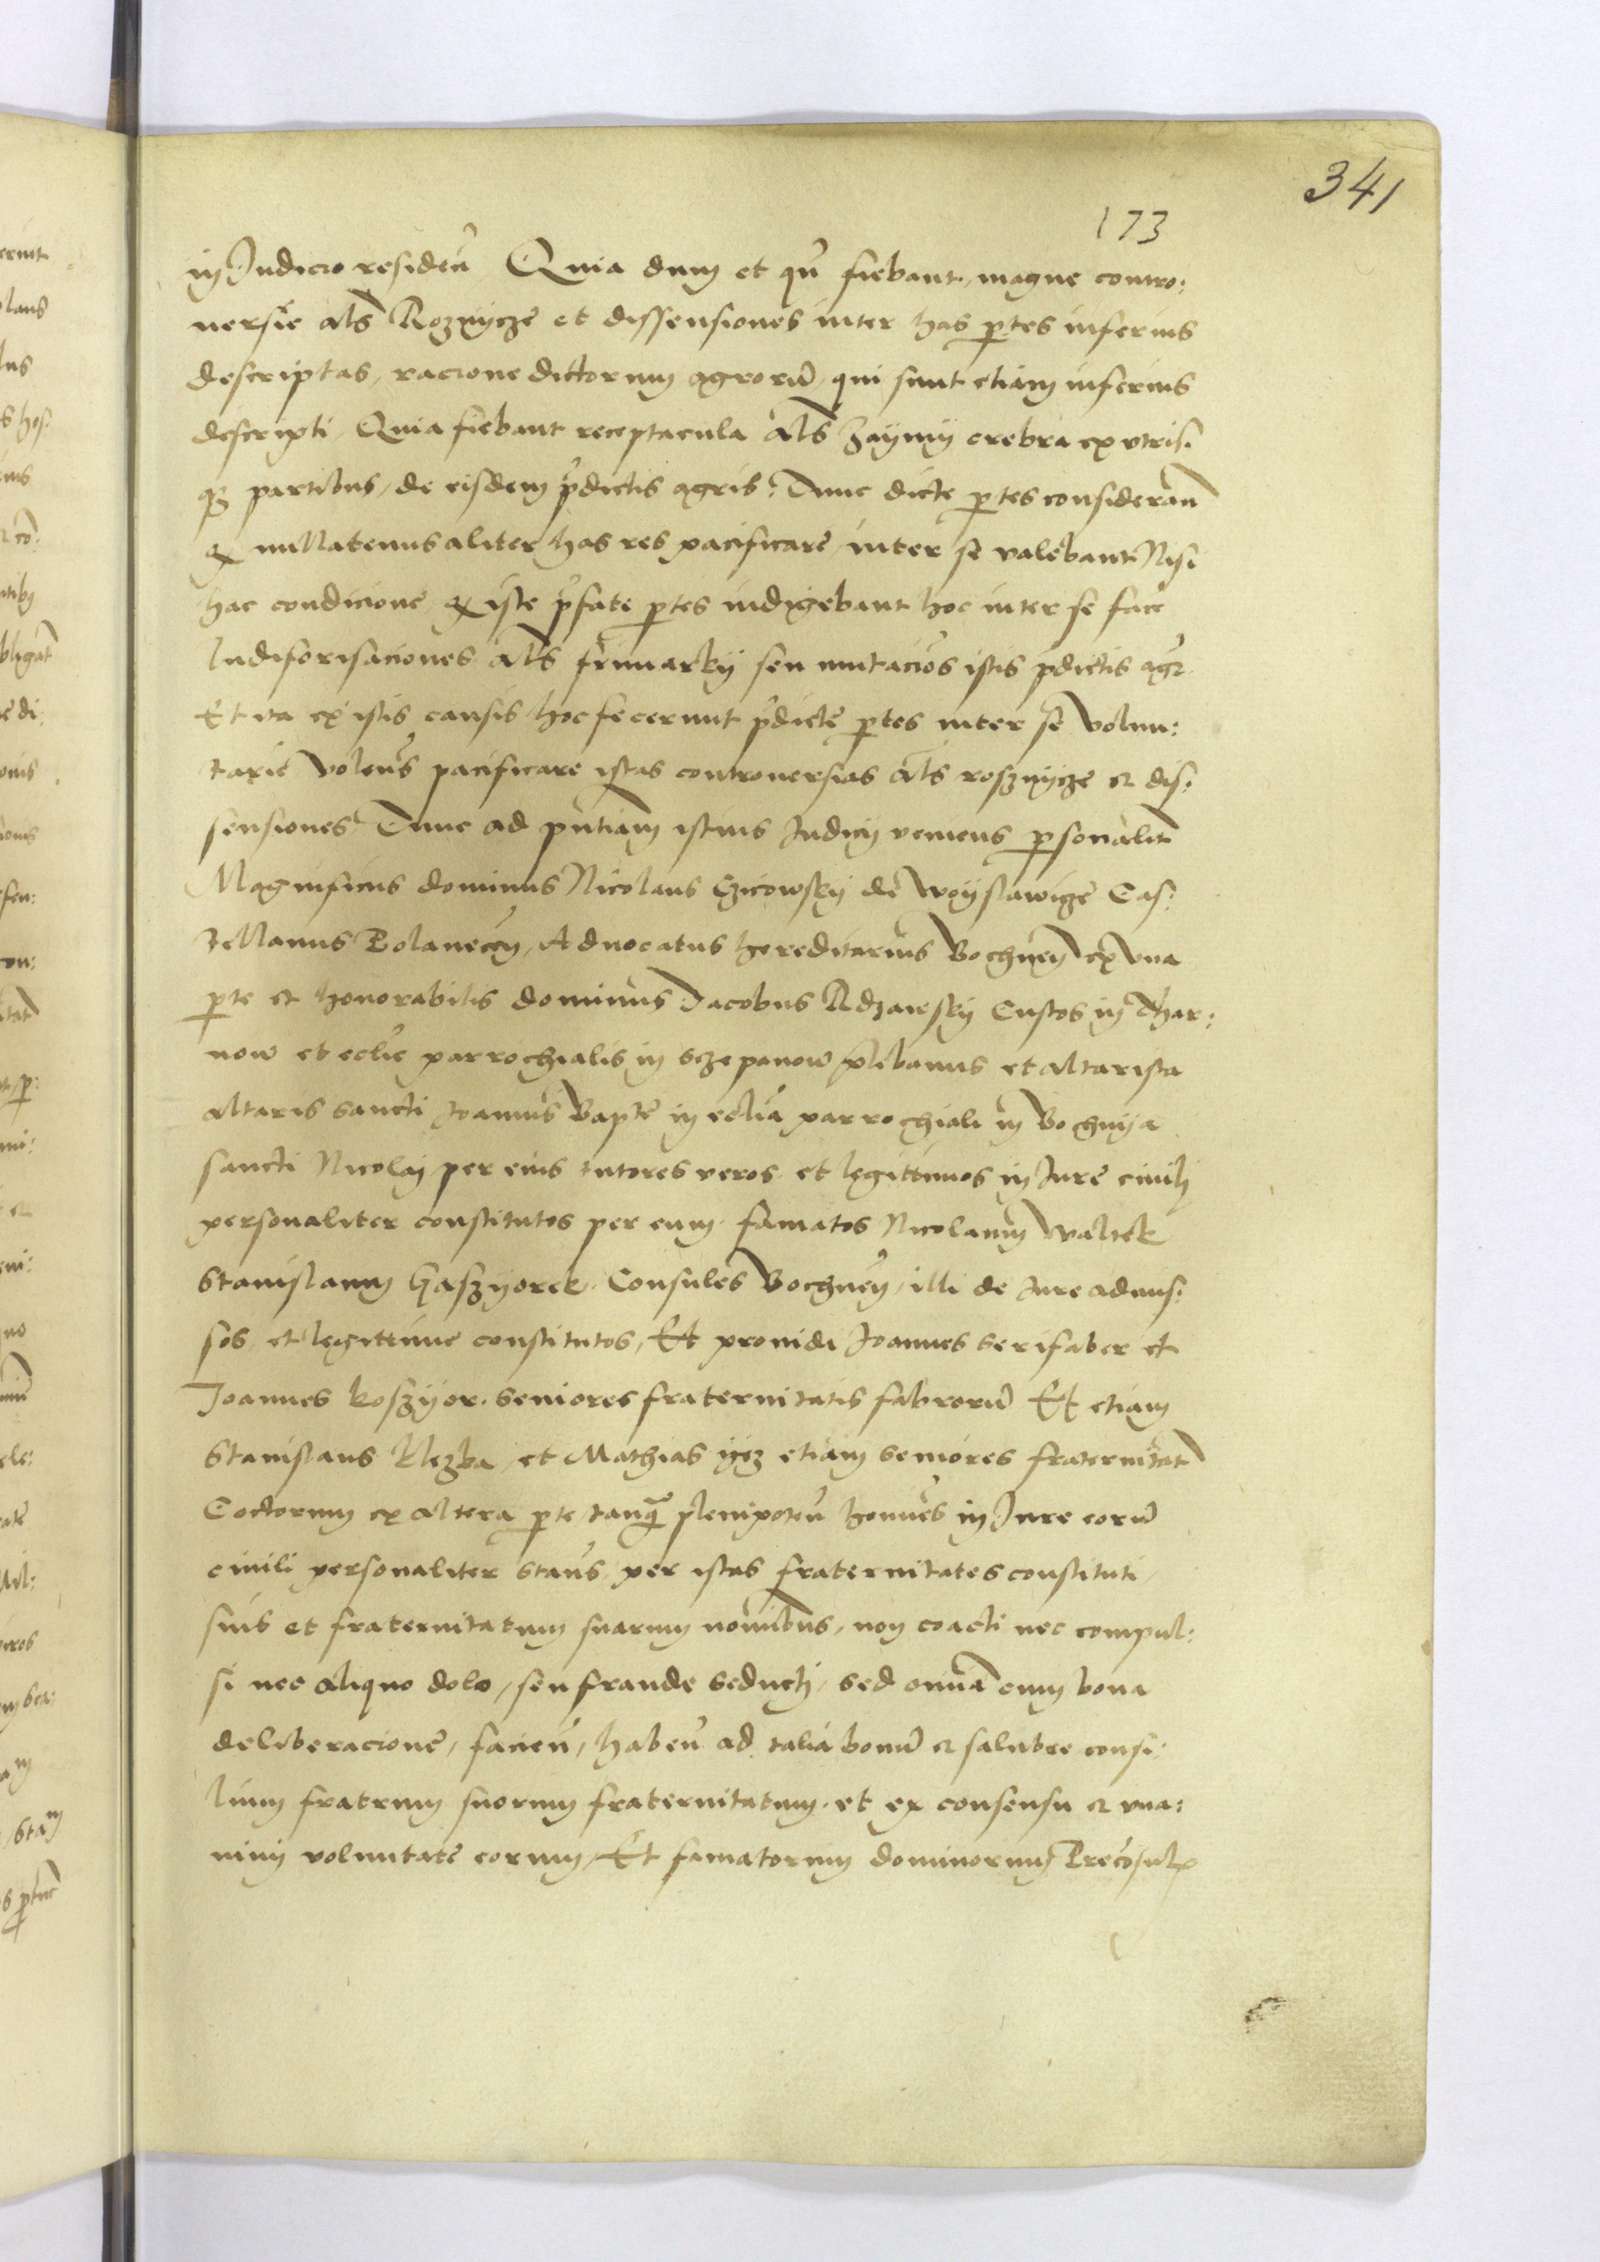 341
173
in Iudicio residen̄ Quia dum et qn̄ fiebant magne contro:
uersie als̄ Roznycze et dissensiones inter has p̱tes inferius
descriptas, racione dictorum agrorū qui sunt etiam inferius
descripti, Quia fiebant receptacula als̄ Zaymy crebra ex vtris:
qꝫ partibus, de eisdem p̄dictis agris: Tunc dicte p̱tes consideran̄
qꝫ nullatenus aliter has res pacificare inter se valebant Nisi
hac condicione qꝫ iste p̄fate p̱tes indigebant hoc inter se facē
Indiforisaciones als̄ frimarky seu mutacio̅s istis p̄dictis agr̄
Et ita ex istis causis hoc fecerunt p̄dicte p̱tes inter se volun:
tarie volen̄s pacificare istas controuersias als̄ rosznycze & dis:
sensiones Tunc ad pn̄tiam istius Iudicij veniens p̱sonalit̄
Magnificus dominus Nicolaus Czicowsky de Woyslawicze Cas:
tellanus Polanecen̄, Aduocatus hereditarius Bochnen̄ ex vna
p̱te et honorabilis dominus Iacobus Rdzawsky Custos in Thar:
now et eclīe parrochialis in Sczepanow plebanus et altarista
altaris Sancti Ioannis Bapte in eclīa parrochiali in Bochnya
sancti Nicolaj per eius tutores veros et legittimos in Iure ciuili
personaliter constitutos per eum famatos Nicolaum Waltek
Stanislaum Gaszyorek Consules Bochnen̄, illi de Iure admis:
sos et legittime constitutos, Et prouidi Ioannes Serifaber et
Ioannes Koszyor seniores fraternitatis fabrorū Et etiam
Stanislaus Klezba et Mathias yez etiam seniores fraternitat̄
Coctorum ex altera p̱te tanq̄ plenipoten̄ homīes in Iure eorū
ciuili personaliter stan̄s per istas fraternitates constituti
suis et fraternitatum suarum nominibus, non coacti nec compul:
si nec aliquo dolo, seu fraude seducti, sed omnia cum bona
deliberacione, facien̄, haben̄ ad talia bonū & salubre consi:
lium fratrum suorum fraternitatum et ex consensu & vna:
nimi voluntate eorum, Et famatorum dominorum Precōsulꝫ